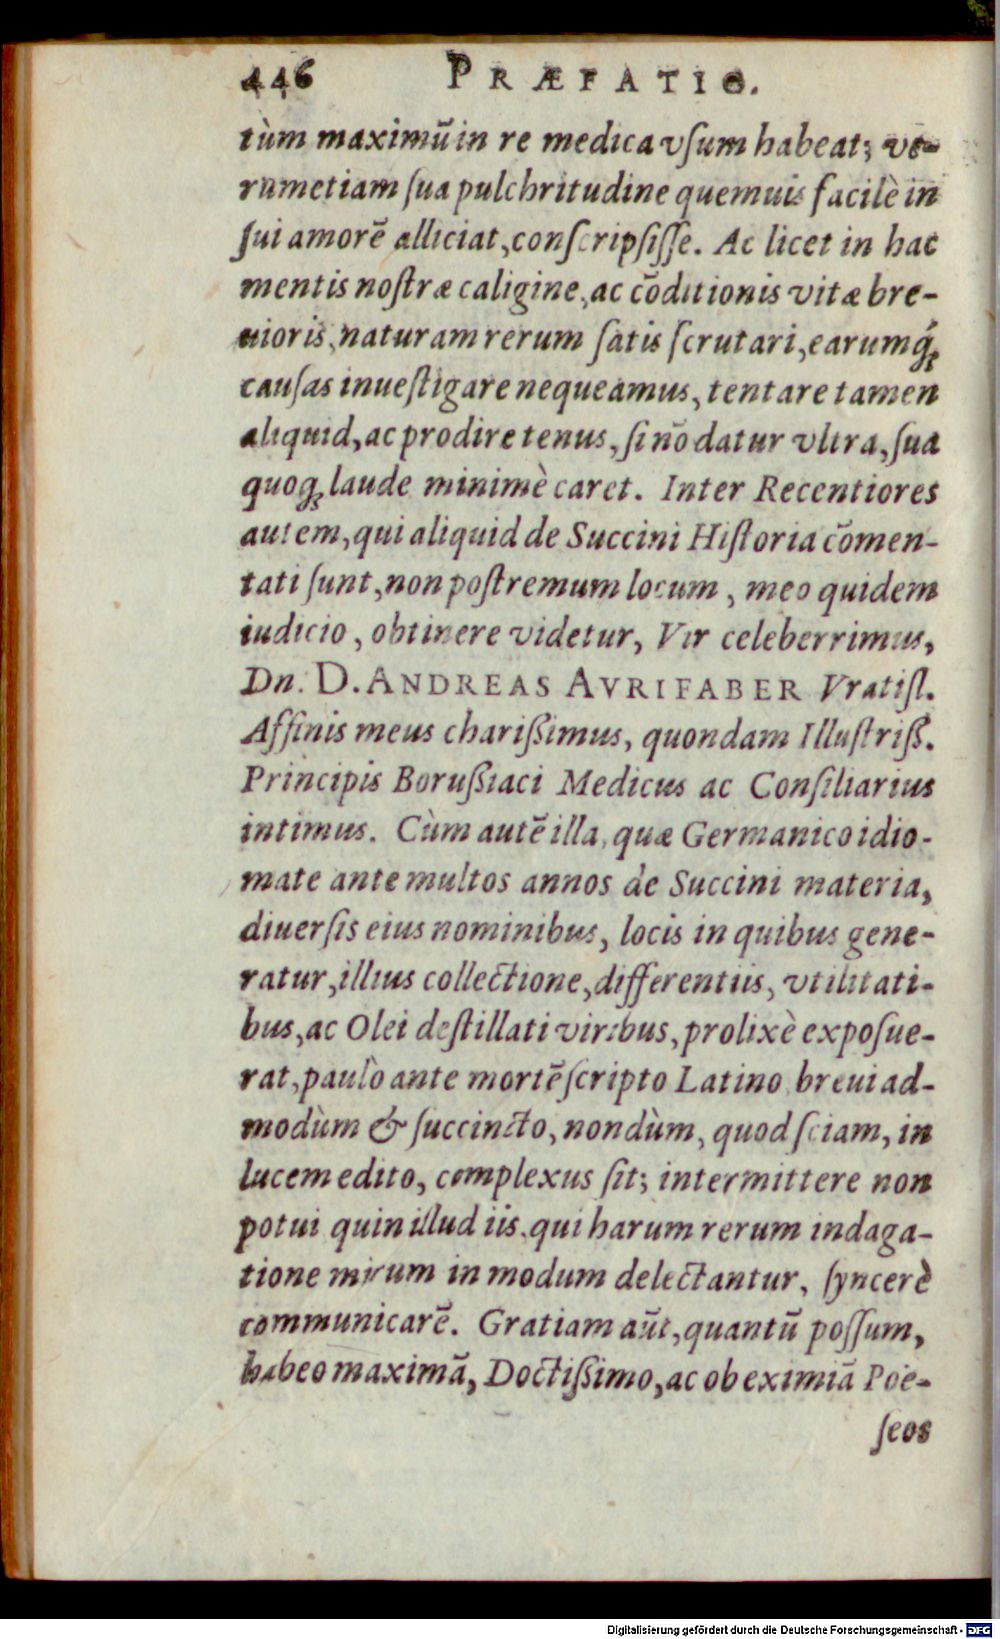 446 PRÆFATIO.
tùm maximũ in re medica vſum habeat; ve-
rumetiam ſua pulchritudine quemuis facilè in
ſui amorẽ alliciat, conſcripſiſſe. Ac licet in hac
mentis noſtræ caligine, ac cõditionis vitæ bre-
uioris, naturam rerum ſatis ſcrutari, earumq́ꝫ
cauſas inueſtigare nequeamus, tentare tamen
aliquid, ac prodire tenus, ſi nõ datur vltra, ſua
quoqꝫ laude minimè caret. Inter Recentiores
autem, qui aliquid de Succini Hiſtoria cõmen-
tati ſunt, non poſtremum locum, meo quidem
iudicio, obtinere videtur, Vir celeberrimus,
Dn. D. ANDREAS AVRIFABER Vratiſl.
Affinis meus chariſſimus, quondam Illuſtriſſ.
Principis Boruſſiaci Medicus ac Conſiliarius
intimus. Cùm autẽ illa, quæ Germanico idio-
mate ante multos annos de Succini materia,
diuerſis eius nominibus, locis in quibus gene-
ratur, illius collectione, differentiis, vtilitati-
bus, ac Olei deſtillati viribus, prolixè expoſue-
rat, paulò ante mortẽ ſcripto Latino breui ad-
modùm & ſuccincto, nondùm, quod ſciam, in
lucem edito, complexus ſit; intermittere non
potui quin illud iis, qui harum rerum indaga-
tione mirum in modum delectantur, ſyncerè
communicarẽ. Gratiam aũt, quantũ poſſum,
habeo maximã, Doctiſſimo, ac ob eximiã Poë-
ſeos
Digitalisierung gefördert durch die Deutsche Forschungsgemeinschaft - DFG